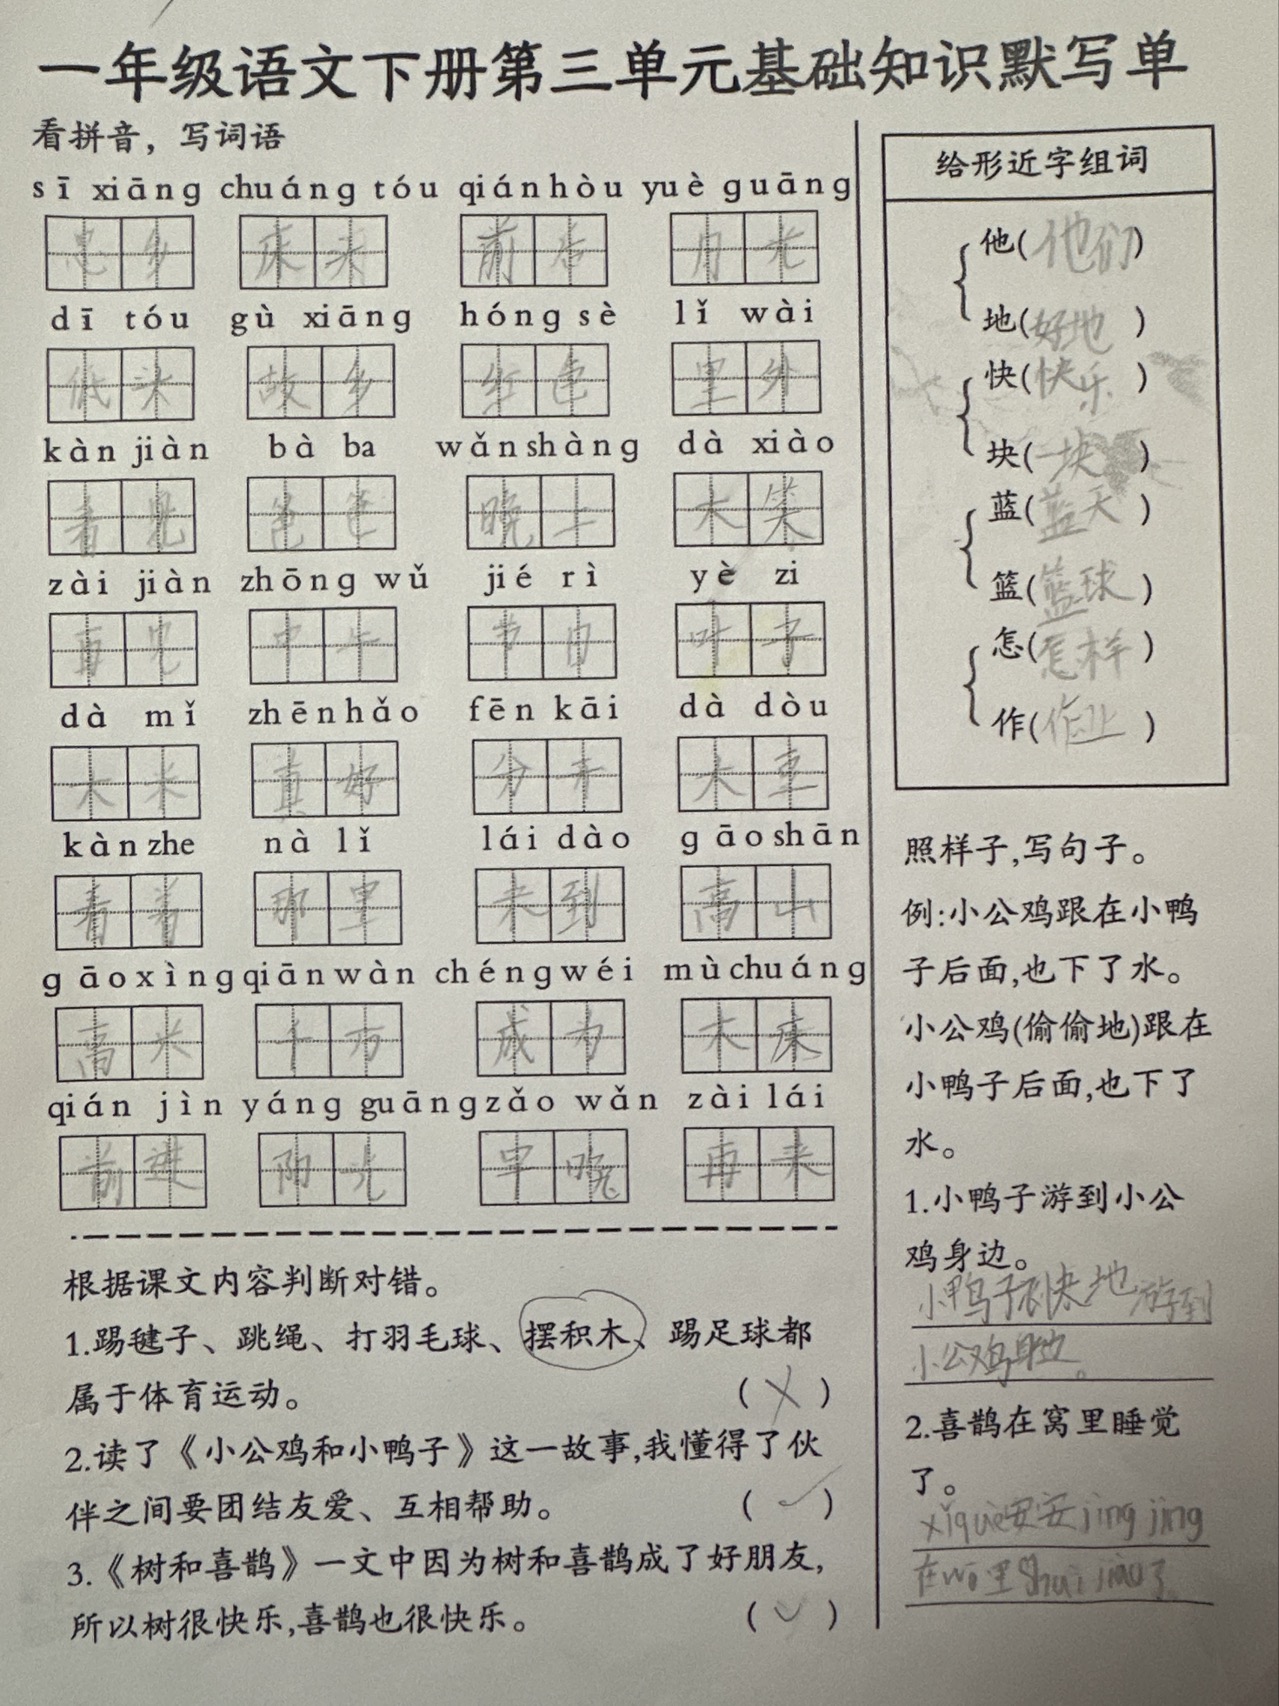 一年级语文下册第三单元基础知识默写单
看拼音，写词语
sī xiāng chuáng tóu qián hòu yuè guāng
思乡 床头 前后 月光
dī tóu gù xiāng hóng sè lǐ wài
低头 故乡 红色 里外
kàn jiàn bà ba wǎn shàng dà xiào
看见 爸爸 晚上 大笑
zài jiàn zhōng wǔ jié rì yè zi
再见 中午 节日 叶子
dà mǐ zhēn hǎo fēn kāi dà dòu
大米 真好 分开 大豆
kàn zhe nà lǐ lái dào gāo shān
看着 那里 来到 高山
gāo xìng qiān wàn chéng wéi mù chuáng
高兴 千万 成为 木床
qián jìn yáng guāng zǎo wǎn zài lái
前进 阳光 早晚 再来
根据课文内容判断对错。
1.踢毽子、跳绳、打羽毛球、摆积木、踢足球都
属于体育运动。 (×)
2.读了《小公鸡和小鸭子》这一故事,我懂得了伙
伴之间要团结友爱、互相帮助。 (✓)
3.《树和喜鹊》一文中因为树和喜鹊成了好朋友,
所以树很快乐,喜鹊也很快乐。 (✓)
给形近字组词
他(他们)
地(好地)
快(快乐)
块(一块)
蓝(蓝天)
篮(篮球)
怎(怎样)
作(作业)
照样子,写句子。
例:小公鸡跟在小鸭
子后面,也下了水。
小公鸡(偷偷地)跟在
小鸭子后面,也下了
水。
1.小鸭子游到小公
鸡身边。
小鸭子很快地游到
小公鸡身边。
2.喜鹊在窝里睡觉
了。
xǐ què安安jìng jìng
在wō里shuì jiào了。